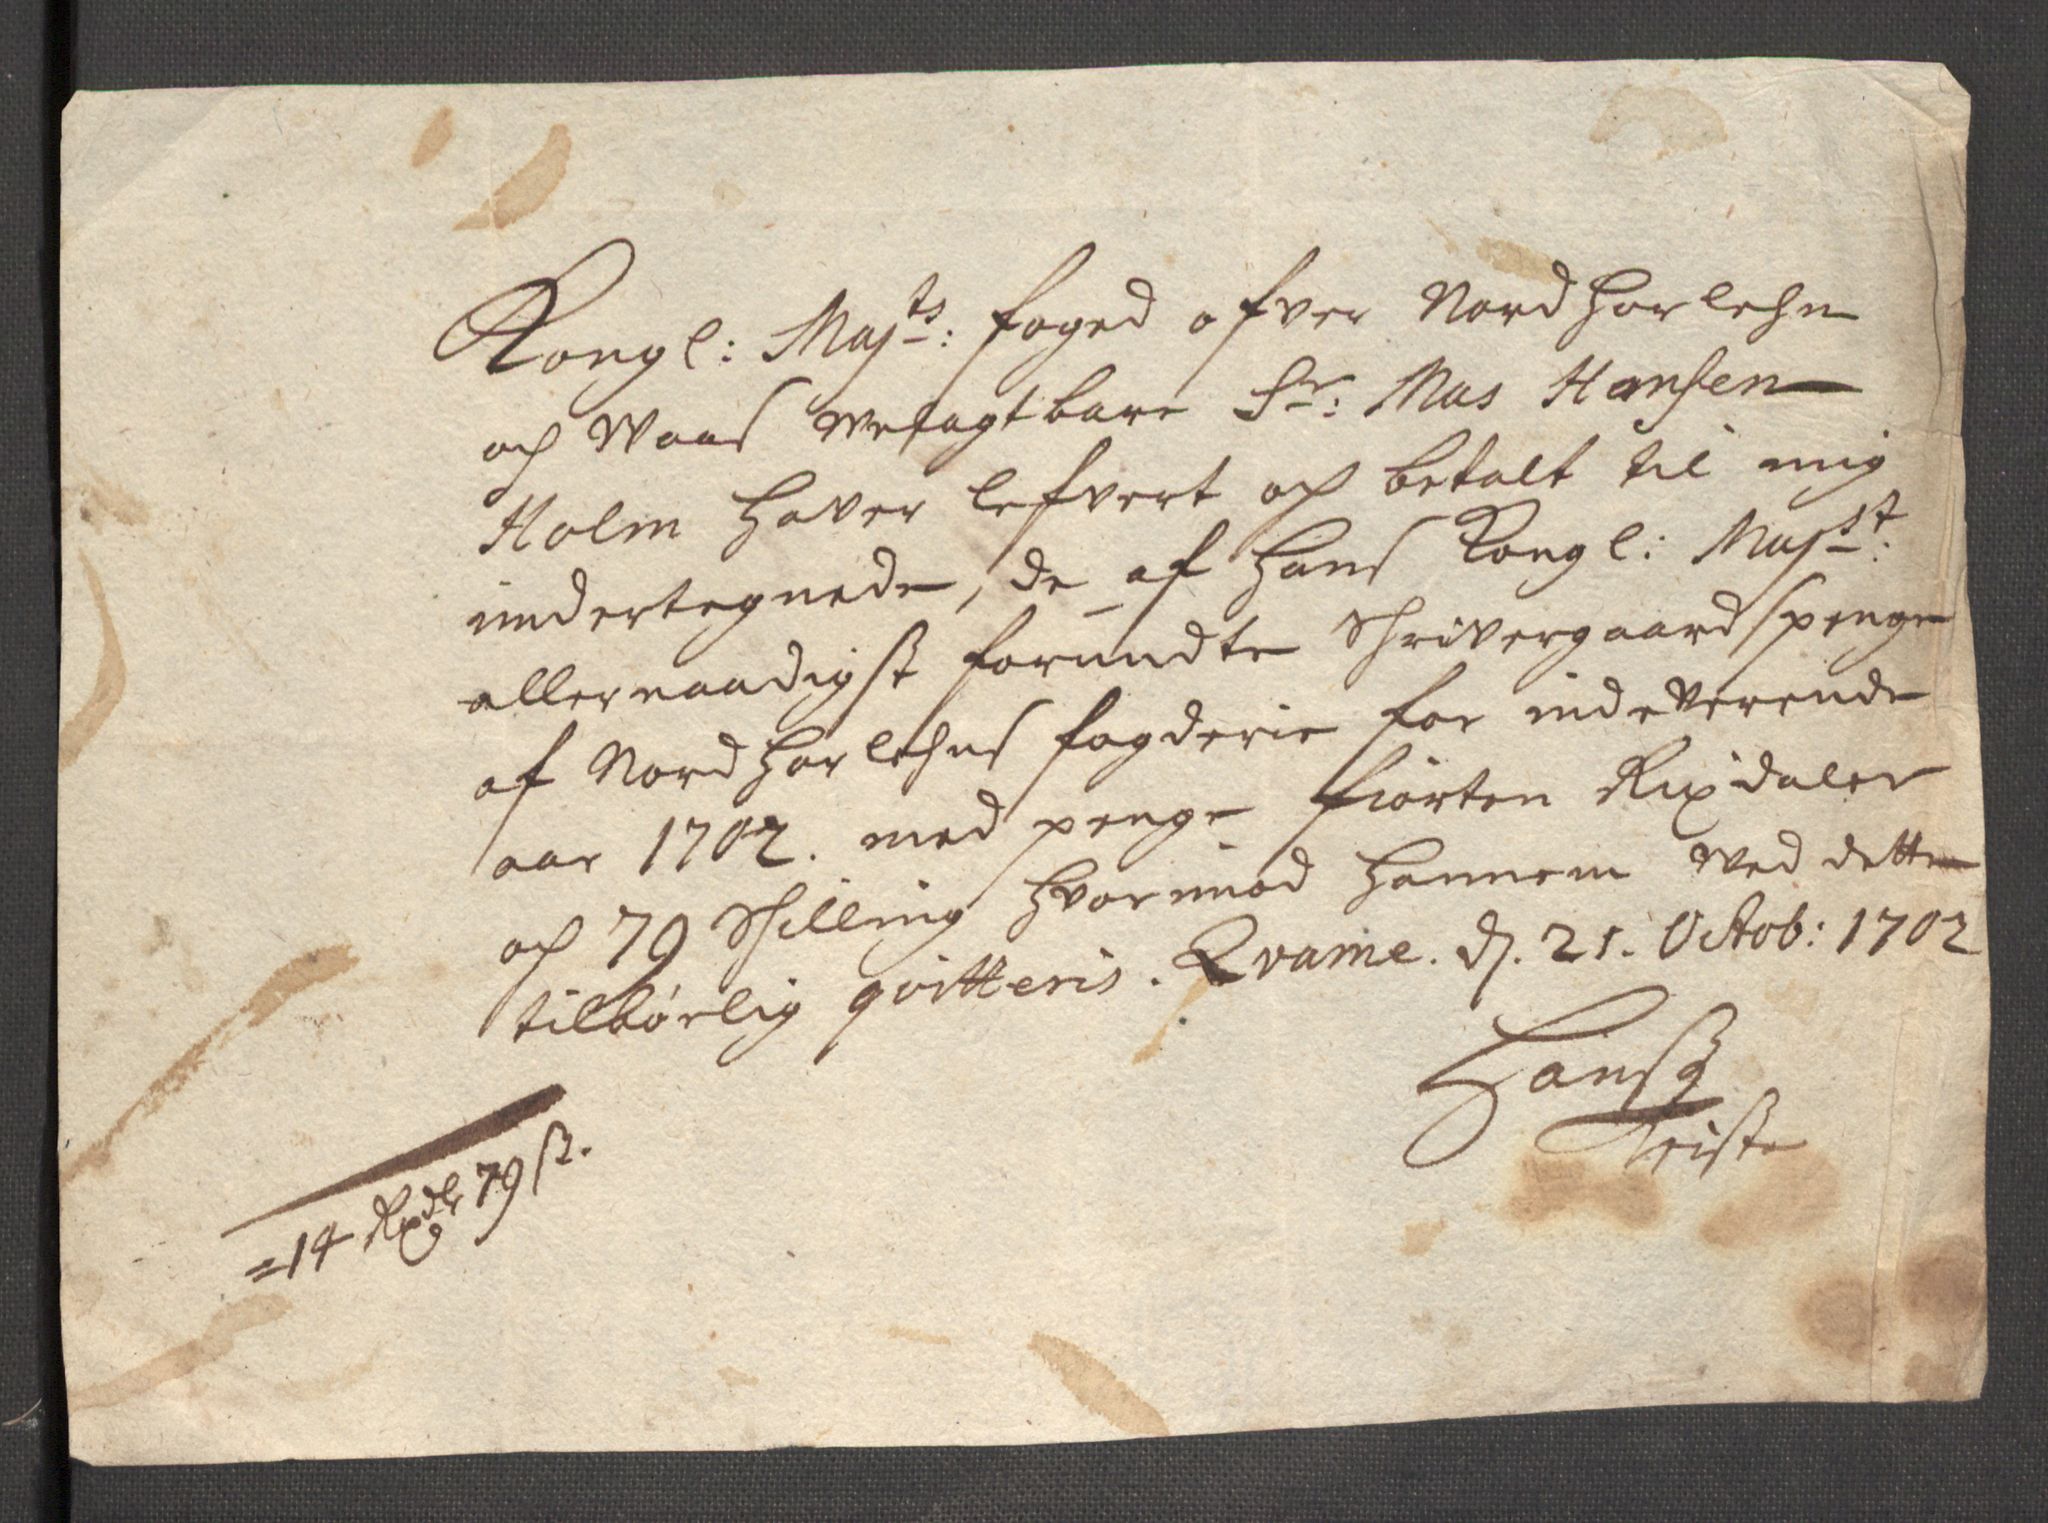 Kongl: Majts: foged ofver Nordhorlehn
och Waas Wefagtbare Sr: Mas Hansen
Holm haver lefvert och betalt til mig
undertegnede, de af Hans Kongl: Majst:
allernaadigst forundte Schrivergaards penge
af Nordhorlehns fogderie for indeverende
aar 1702. med penge fiorten Rixdaler
och 79 Schilling hvorimod hannem ved dette
tilbørlig qvitteris. Qvame. d. 21. Octob: 1702
Hanss
Friste
=14 Rixdlr 79 ß.